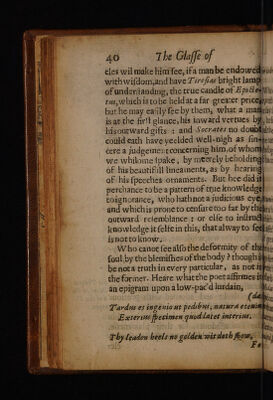 40 The Glasse of
cles wil make him see, if a man be endowed
with wisdom, and have Tiresias bright lamp
of understanding, the true candle of Epicte-
tus, which is to be held at a far greater price,
but he may easily see by them, what a man
is at the first glance, his inward vertues by
his outward gifts : and Socrates no doubt
could eath have yeelded well-nigh as sin-
cere a judgement concerning him, of whom
we whilome spake, by meerely beholding
of his beautifull lineaments, as by hearing
of his speeches ornaments. But hee did it
perchance to be a pattern of true knowledge
to ignorance, who hath not a judicious eye,
and which is prone to censure too far by the
outward resemblance : or else to instruct
knowledge it selfe in this, that alway to see
is not to know.
Who canot see also the deformity of the
soul, by the blemishes of the body ? though it
be not a truth in every particular, as not in
the former. Heare what the poet affirmes in
an epigram upon a low-pac'd lurdain,
Tardus es ingenio ut pedibus, natura etenim
Exterius specimen quod latet interius.
Thy leaden heels no golden wit doth show,